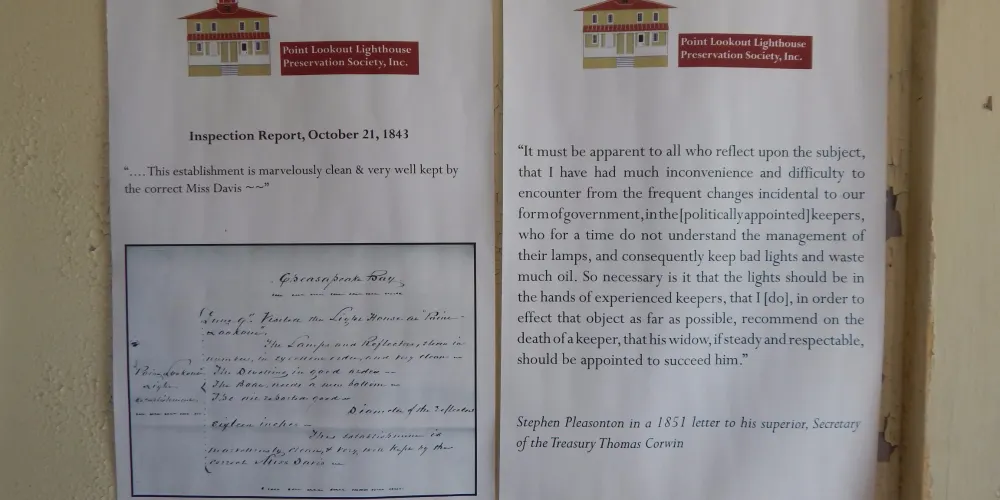 Point Lookout Lighthouse
Preservation Society, Inc.
Inspection Report, October 21, 1843
“....This establishment is marvelously clean & very well kept by
the correct Miss Davis ~~”
Chesapeake Bay
Visited the Light House at Point
Lookout.
The Lamps and Reflectors, eleven in
number, in excellent order, and very clean —
The Dwelling in good order —
The Boat needs a new bottom —
The oil reported good —
Diameter of the reflectors
eighteen inches —
This establishment is
marvelously clean & very well kept by the
correct Miss Davis —
Point Lookout
Light
establishment
Point Lookout Lighthouse
Preservation Society, Inc.
“It must be apparent to all who reflect upon the subject,
that I have had much inconvenience and difficulty to
encounter from the frequent changes incidental to our
form of government, in the [politically appointed] keepers,
who for a time do not understand the management of
their lamps, and consequently keep bad lights and waste
much oil. So necessary is it that the lights should be in
the hands of experienced keepers, that I [do], in order to
effect that object as far as possible, recommend on the
death of a keeper, that his widow, if steady and respectable,
should be appointed to succeed him.”
Stephen Pleasonton in a 1851 letter to his superior, Secretary
of the Treasury Thomas Corwin